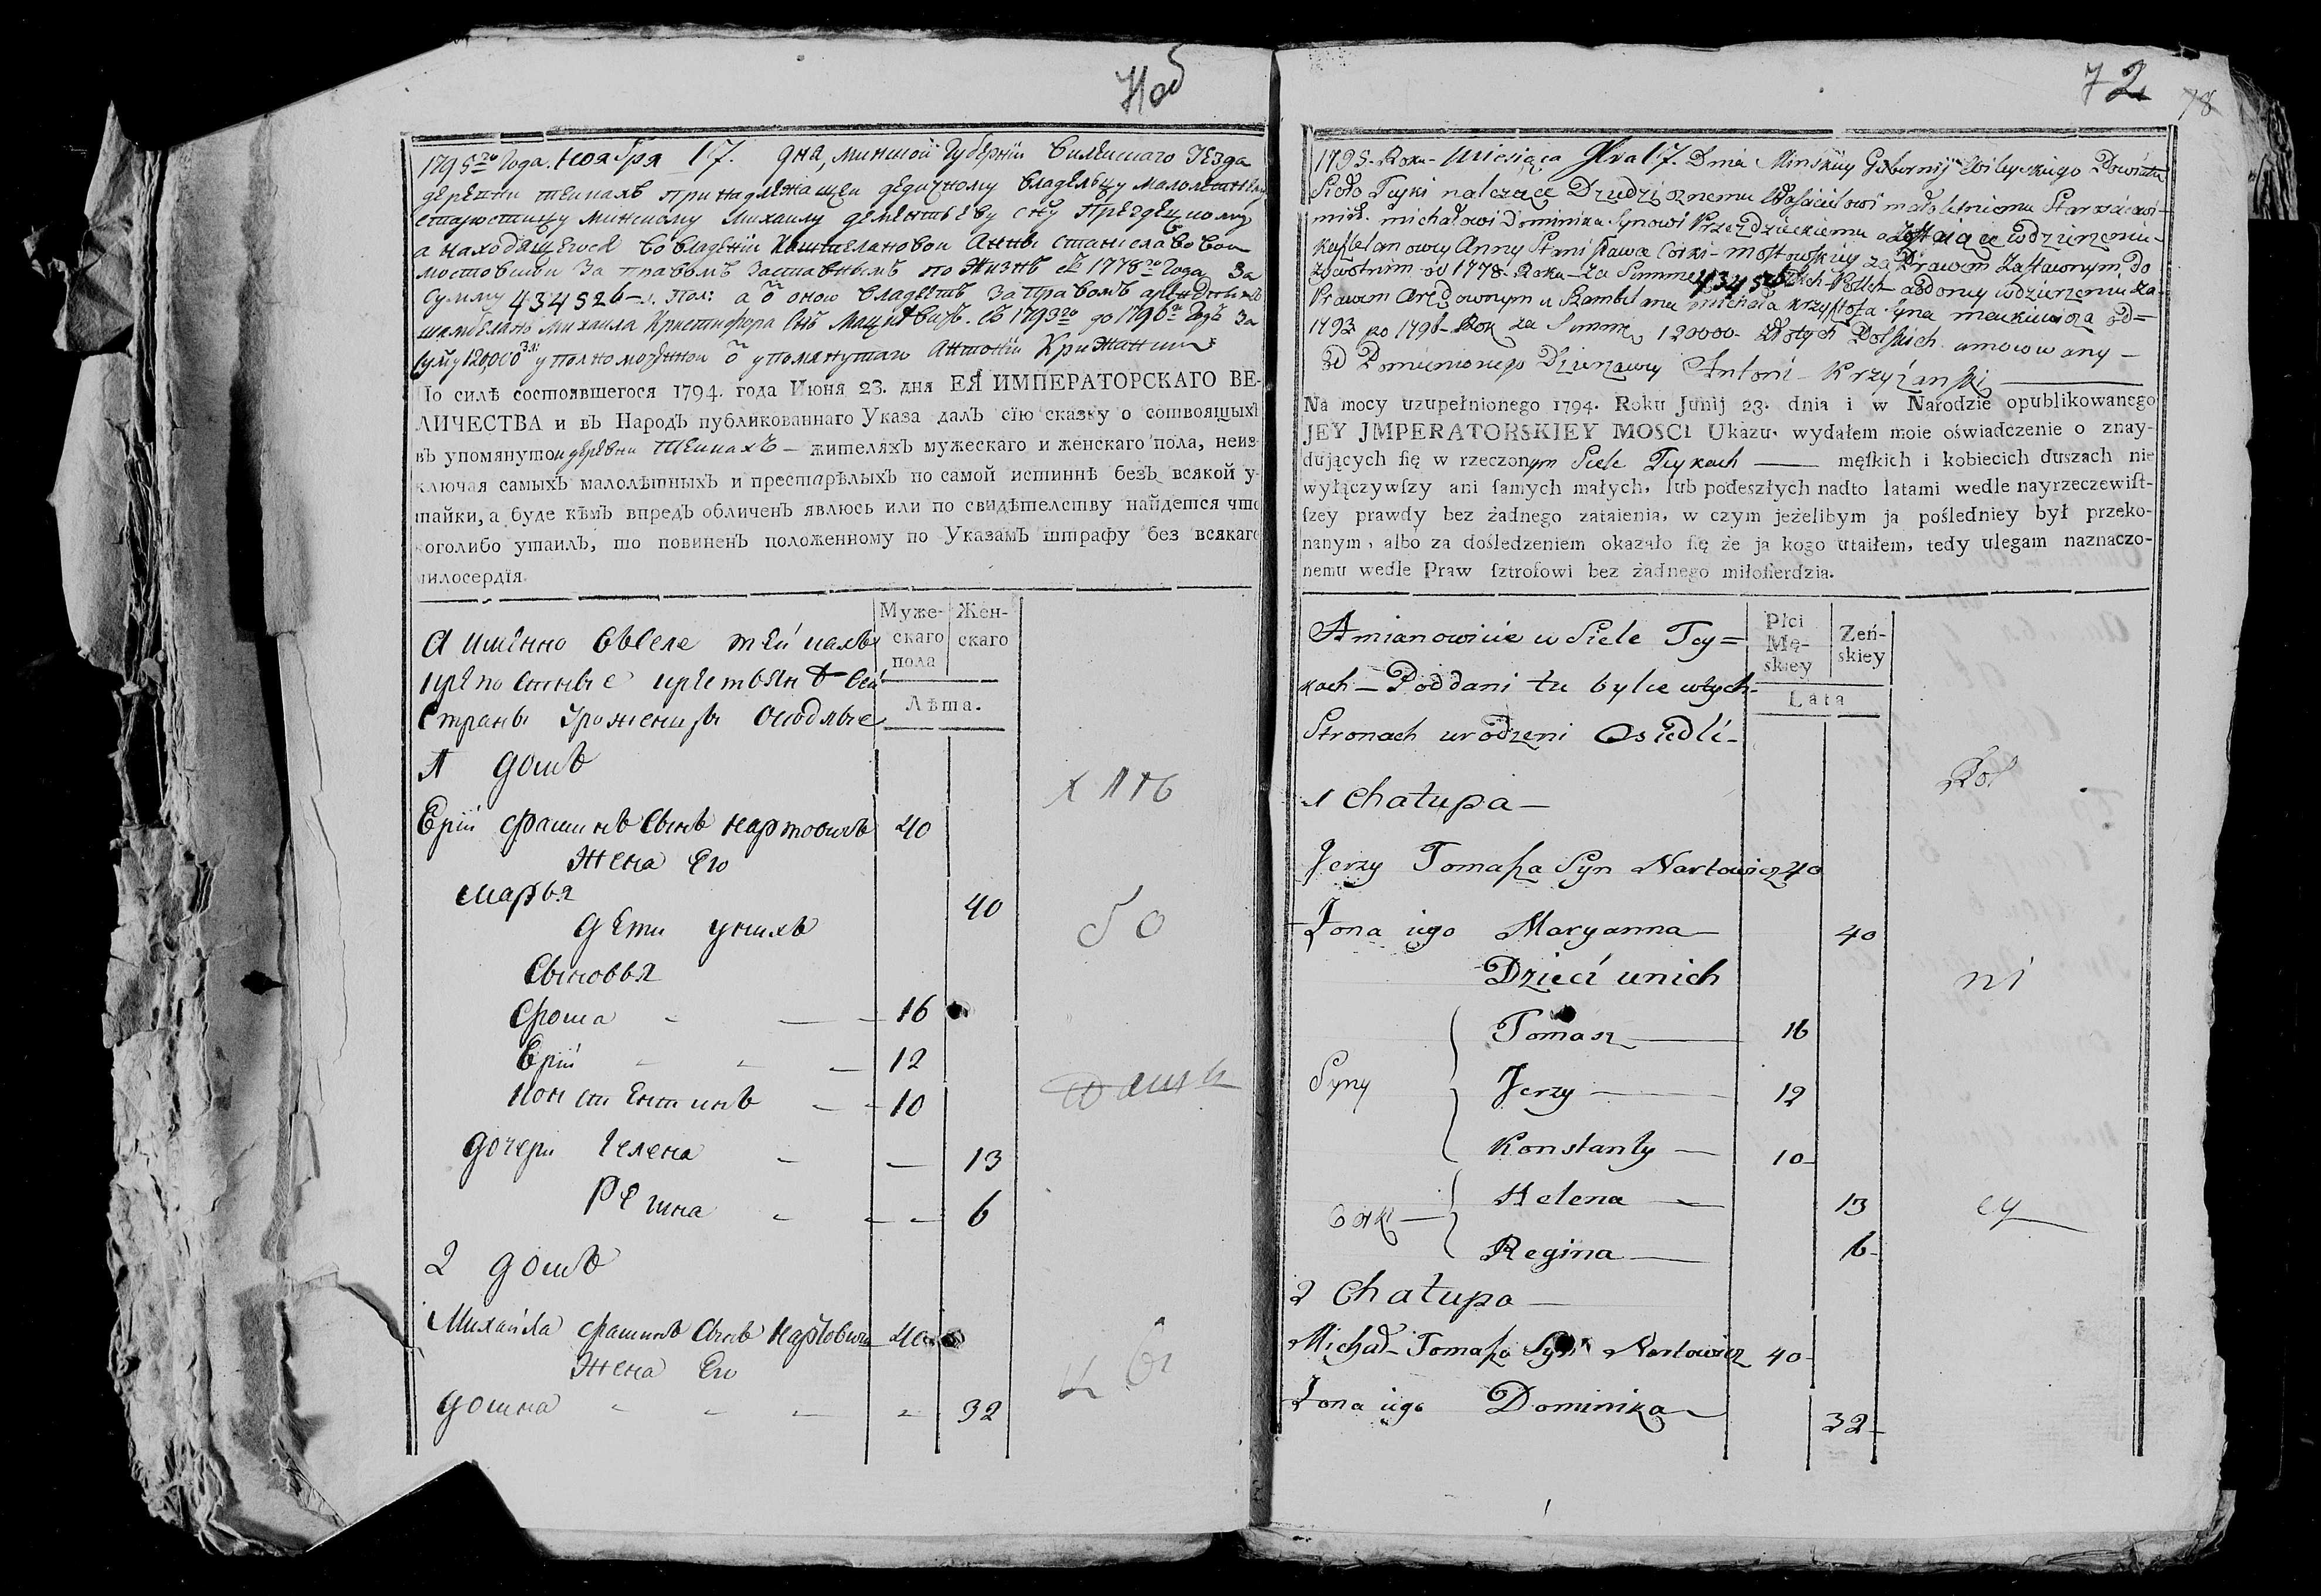 71об
1795го Года Ноября 17. дня, Минской Губернїи Вилейскаго Уезда
деревни Тейкахъ принадлежащей дедичному владельцу малолетнему
старостицу минскому Михаилу Дементьеву сну Прездецкому
а находящегося во владенїи Каштелановой Анны Станиславовой
Мостовской за правомъ заставнымъ по жизнъ съ 1778го Года за
сумму 434526 пол: а о оною владеетъ за правомъ арендовнымъ
шамбеланъ Михаила Кристофора снъ съ 1793го до 1796го годъ за
сумму 120000 зл: уполномоченной о упомянутаго Антонїи Крижанский
По силѣ состоявшегося 1794. года Июня 23. дня ЕЯ ИМПЕРАТОРСКАГО ВЕ-
ЛИЧЕСТВА и въ Народъ публикованнаго Указа далъ сїю сказку о состоящихъ
въ упомянутой деревни Тейкахъ — жителяхъ мужескаго и женскаго пола, неиз-
ключая самыхъ малолѣтныхъ и престарѣлыхъ по самой истиннѣ безъ всякой у-
тайки, а буде кѣмъ впредъ обличенъ явлюсь или по свидѣтелству найдется что
коголибо утаилъ, то повиненъ положенному по Указамъ штрафу без всякаго
милосердїя.
Муже-скаго пола
Жен-скаго
Лѣта.
А имянно въ селе Тейкахъ
крепостные крестьяне сей
страны уроженцы оседлые
1 домъ
Ерїй Фоминъ сынъ Нартовичъ 40
Жена Его
Марья 40
Дети у нихъ
Сыновья
Фома 16
Ерїй 12
Константинъ 10
Дочери Гелена 13
Регина 6
2 домъ
Михайла Фоминъ сынъ Нартовичъ 40
Жена Его
Домна 32
72
78
1795. Roku Miesiąca 9bra 17. Dnia Minskiey Gubernij Wileyskiego Powiatu
Sioło Teyki należące Dziedzicznemu Właścicielowi małoletniemu Starościcowi
miń. Michałowi Dominika Synowi Przezdzieckiemu a zostaiące w dzierżeniu
Kasztelanowey Anny Stanisława Corki Mostowskiey za Prawem Zastawnym do
żywotnim od 1778. Roku za Summe 434526 Polsk a od oney w dzierżeniu za
Prawem Arędownym u Szambelana Michała Krzysztofa Syna od
1793 po 1796 Rok za Summę 120000 złotych Polskich umocowany
od Pomienionego Dzierżawcy Antoni Krzyżanski
Na mocy uzupełnionego 1794. Roku Junij 23. dnia i w Narodzie opublikowanego
JEY JMPERATORSKIEY MOSCI Ukazu, wydałem moie oświadczenie o znay-
dujących ſię w rzeczonym Siele Teykach — męſkich i kobiecich duszach nie
wyłączywſzy ani ſamych małych, lub podeszłych nadto latami wedle nayrzeczewiſt-
ſzey prawdy bez żadnego zataienia, w czym jeżelibym ja poſledniey był przeko-
nanym, albo za doſledzeniem okazało ſię że ja kogo utaiłem, tedy ulegam naznaczo-
nemu wedle Praw ſztrofowi bez żadnego miłoſierdzia.
Płci Mę-skiey
Żeń-skiey
Lata
A mianowicie w Siele Tey=
kach — Poddani tu bylce w tych
Stronach urodzeni Osiedli
1 Chałupa —
Jerzy Tomaſza Syn Nartowicz 40
Żona iego Maryanna — 40
Dzieci u nich
Tomasz — 16
Syny Jerzy — 12
Konstanty — 10
Helena — 13
Corki — Regina — 6
2 Chałupa —
Michał Tomaſza Syn Nartowicz 40
Żona iego Dominika 32